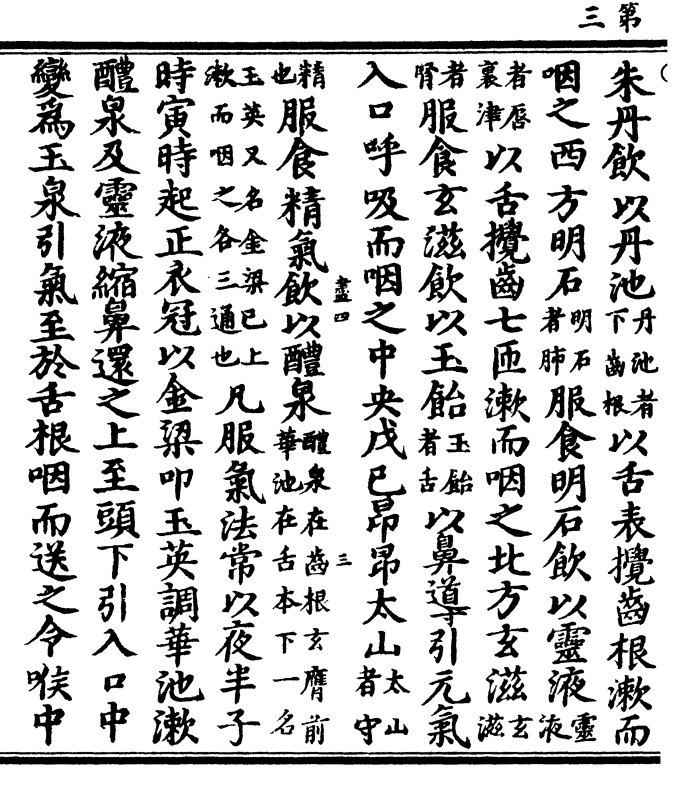 第三
朱丹飲以丹池丹池者下齒根以舌表攪齒根漱而
咽之西方明石明石者肺服食明石飲以靈液靈液
者唇裏津以舌攪齒七匝漱而咽之北方玄滋玄滋
者腎服食玄滋飲以玉飴玉飴者舌以鼻導引元氣
入口呼吸而咽之中央戊巳昂昂太山太山者守
盡四
三
精也服食精氣飲以醴泉醴泉在齒根玄膺前華池在舌本下一名
玉英又名金梁巳上漱而咽之各三通也凡服氣法常以夜半子
時寅時起正衣冠以金梁叩玉英調華池漱
醴泉及靈液縮鼻還之上至頭下引入口中
變為玉泉引氣至於舌根咽而送之令喉中